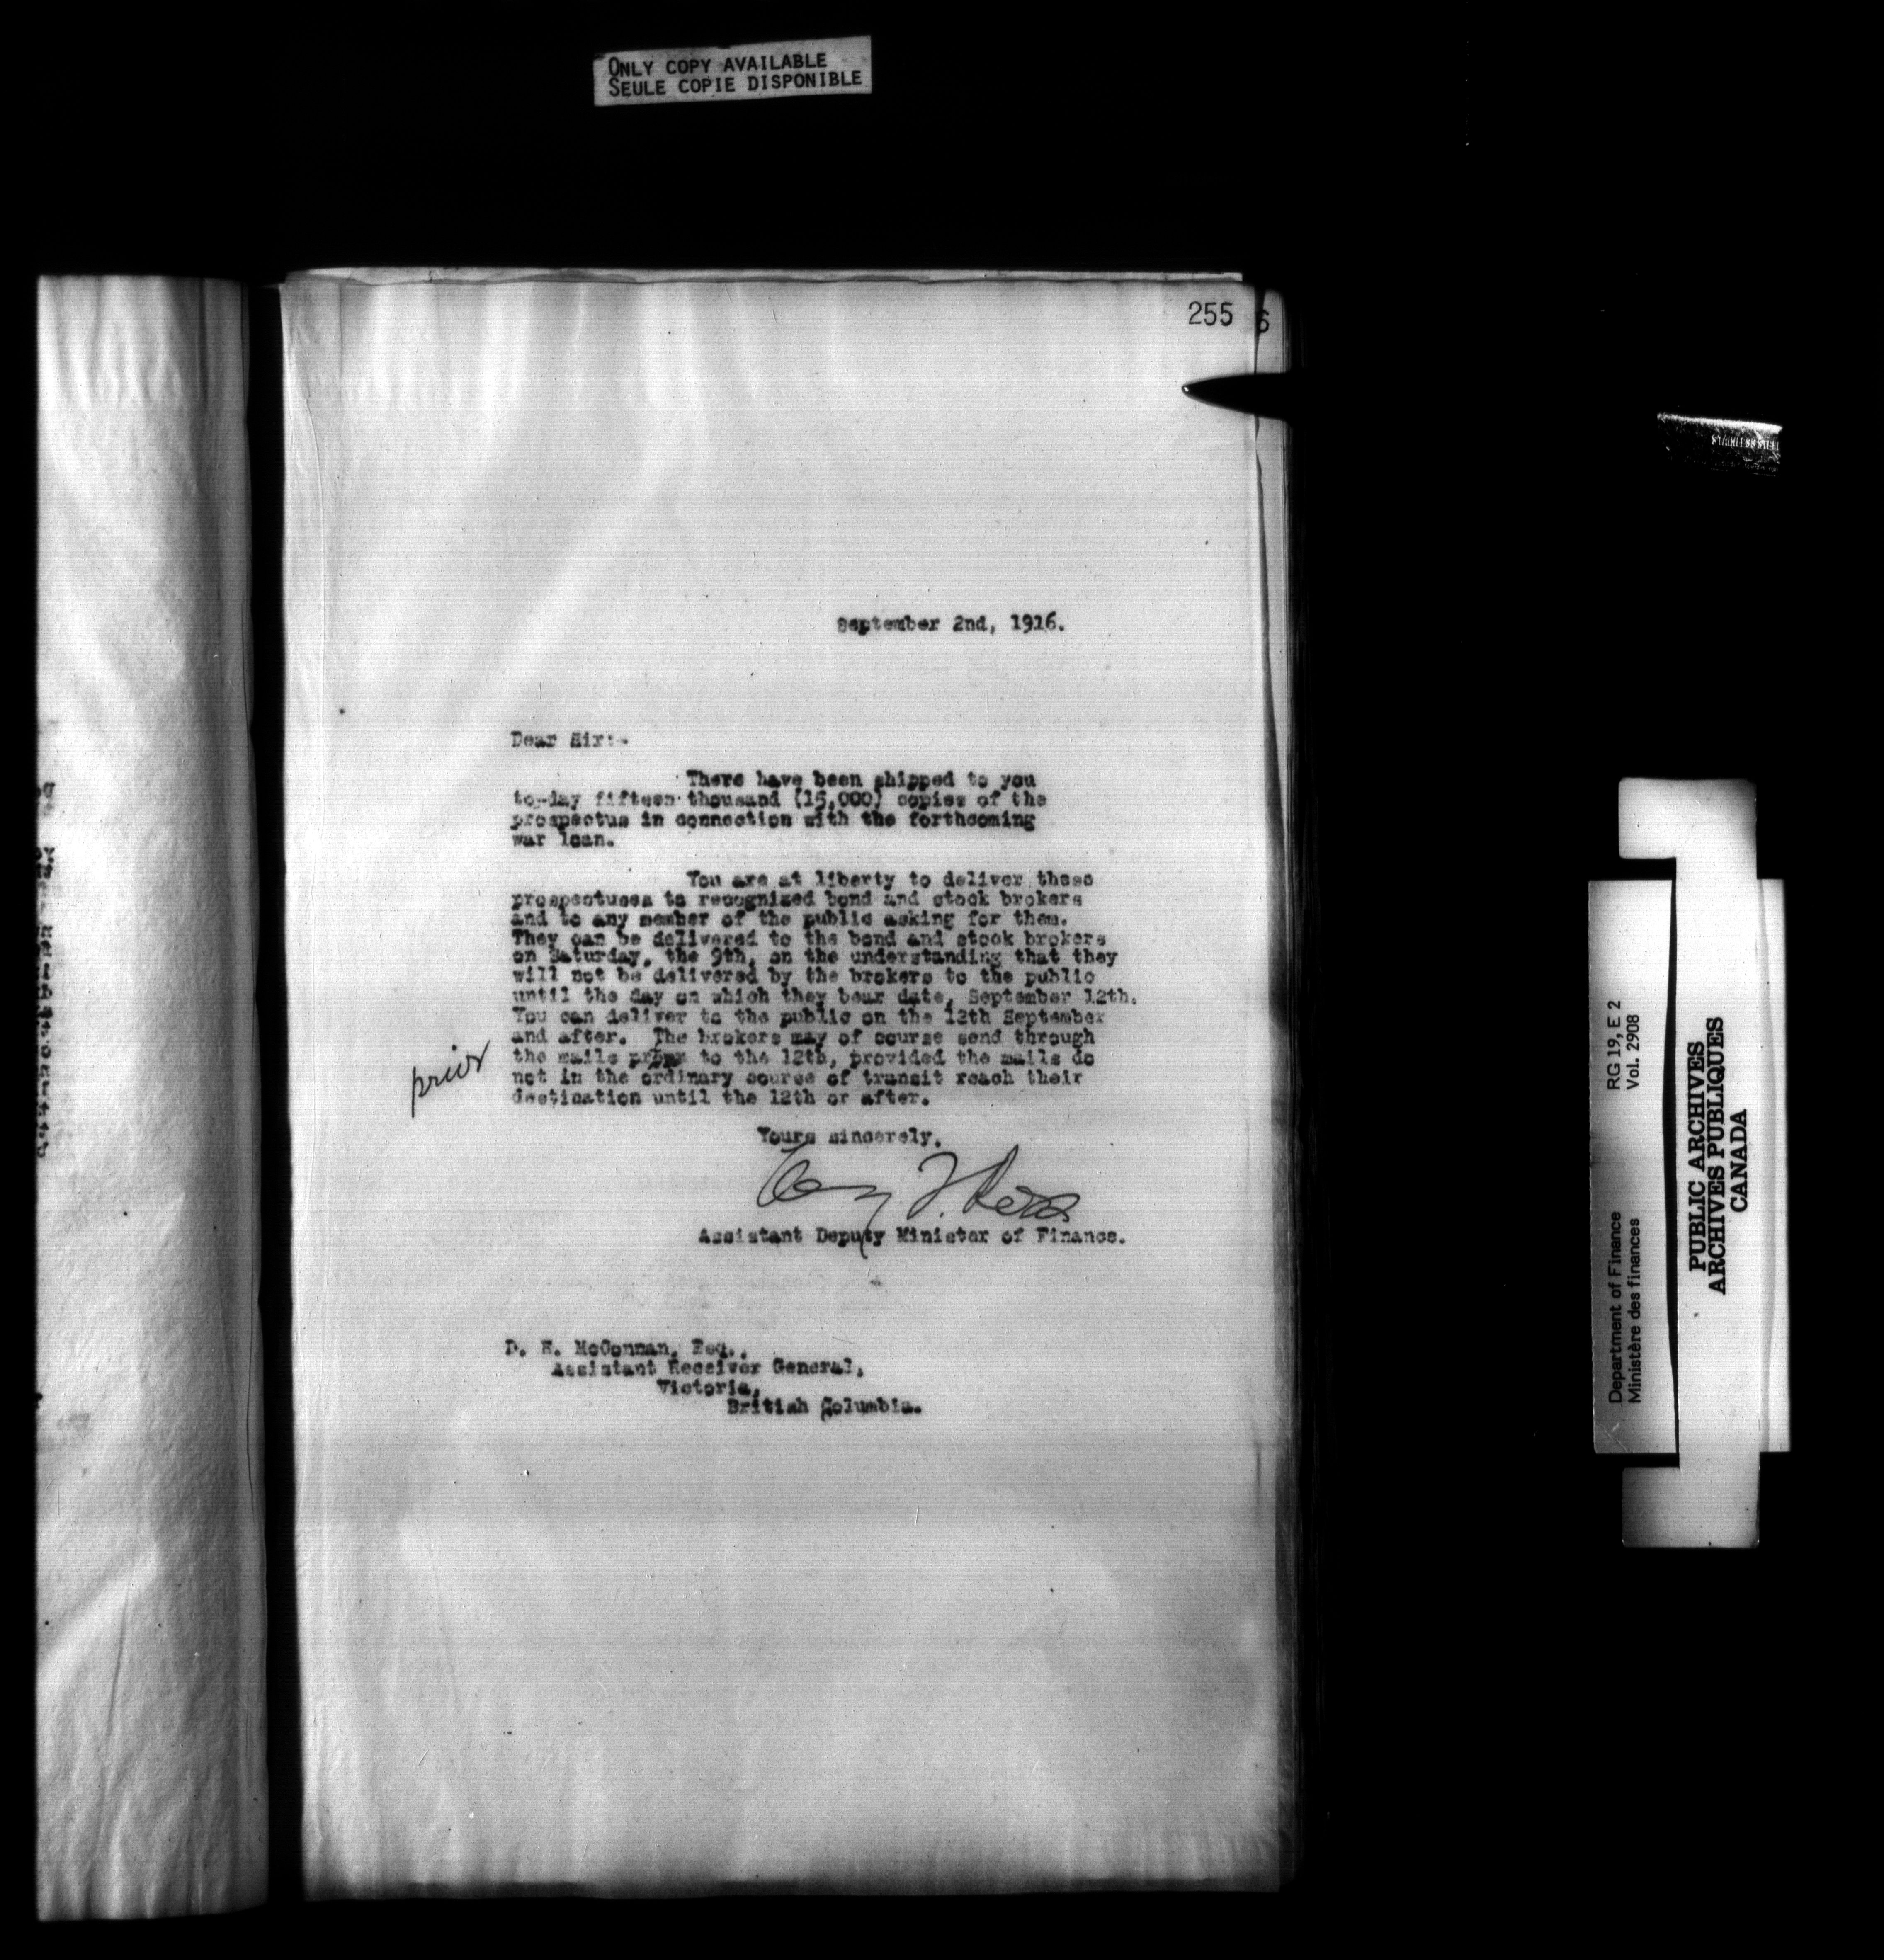 ONLY COPY AVAILABLE
SEULE COPIE DISPONIBLE
255
6
September 2nd, 1916.
Dear Sir:-
There have been shipped to you
to-day fifteen thousand (15,000) copies of the
prospectus in connection with the forthcoming
war loan.
You are at liberty to deliver these
prospectuses to recognized bond and stock brokers
and to any member of the public asking for them.
They can be delivered to the bond and stock brokers
on Saturday, the 9th, on the understanding that they
will not be delivered by the brokers to the public
until the day on which they bear date, September 12th.
You can deliver to the public on the 12th September
and after. The brokers may of course send through
prior
the mails to the 12th, provided the mails do
not in the ordinary course of transit reach their
destination until the 12th or after.
Yours sincerely,
Assistant Deputy Minister of Finance.
D. E. McConnan, Esq.,
Assistant Receiver General,
Victoria,
British Columbia.
Department of Finance RG 19, E 2
Ministère des finances Vol. 2908
PUBLIC ARCHIVES
ARCHIVES PUBLIQUES
CANADA